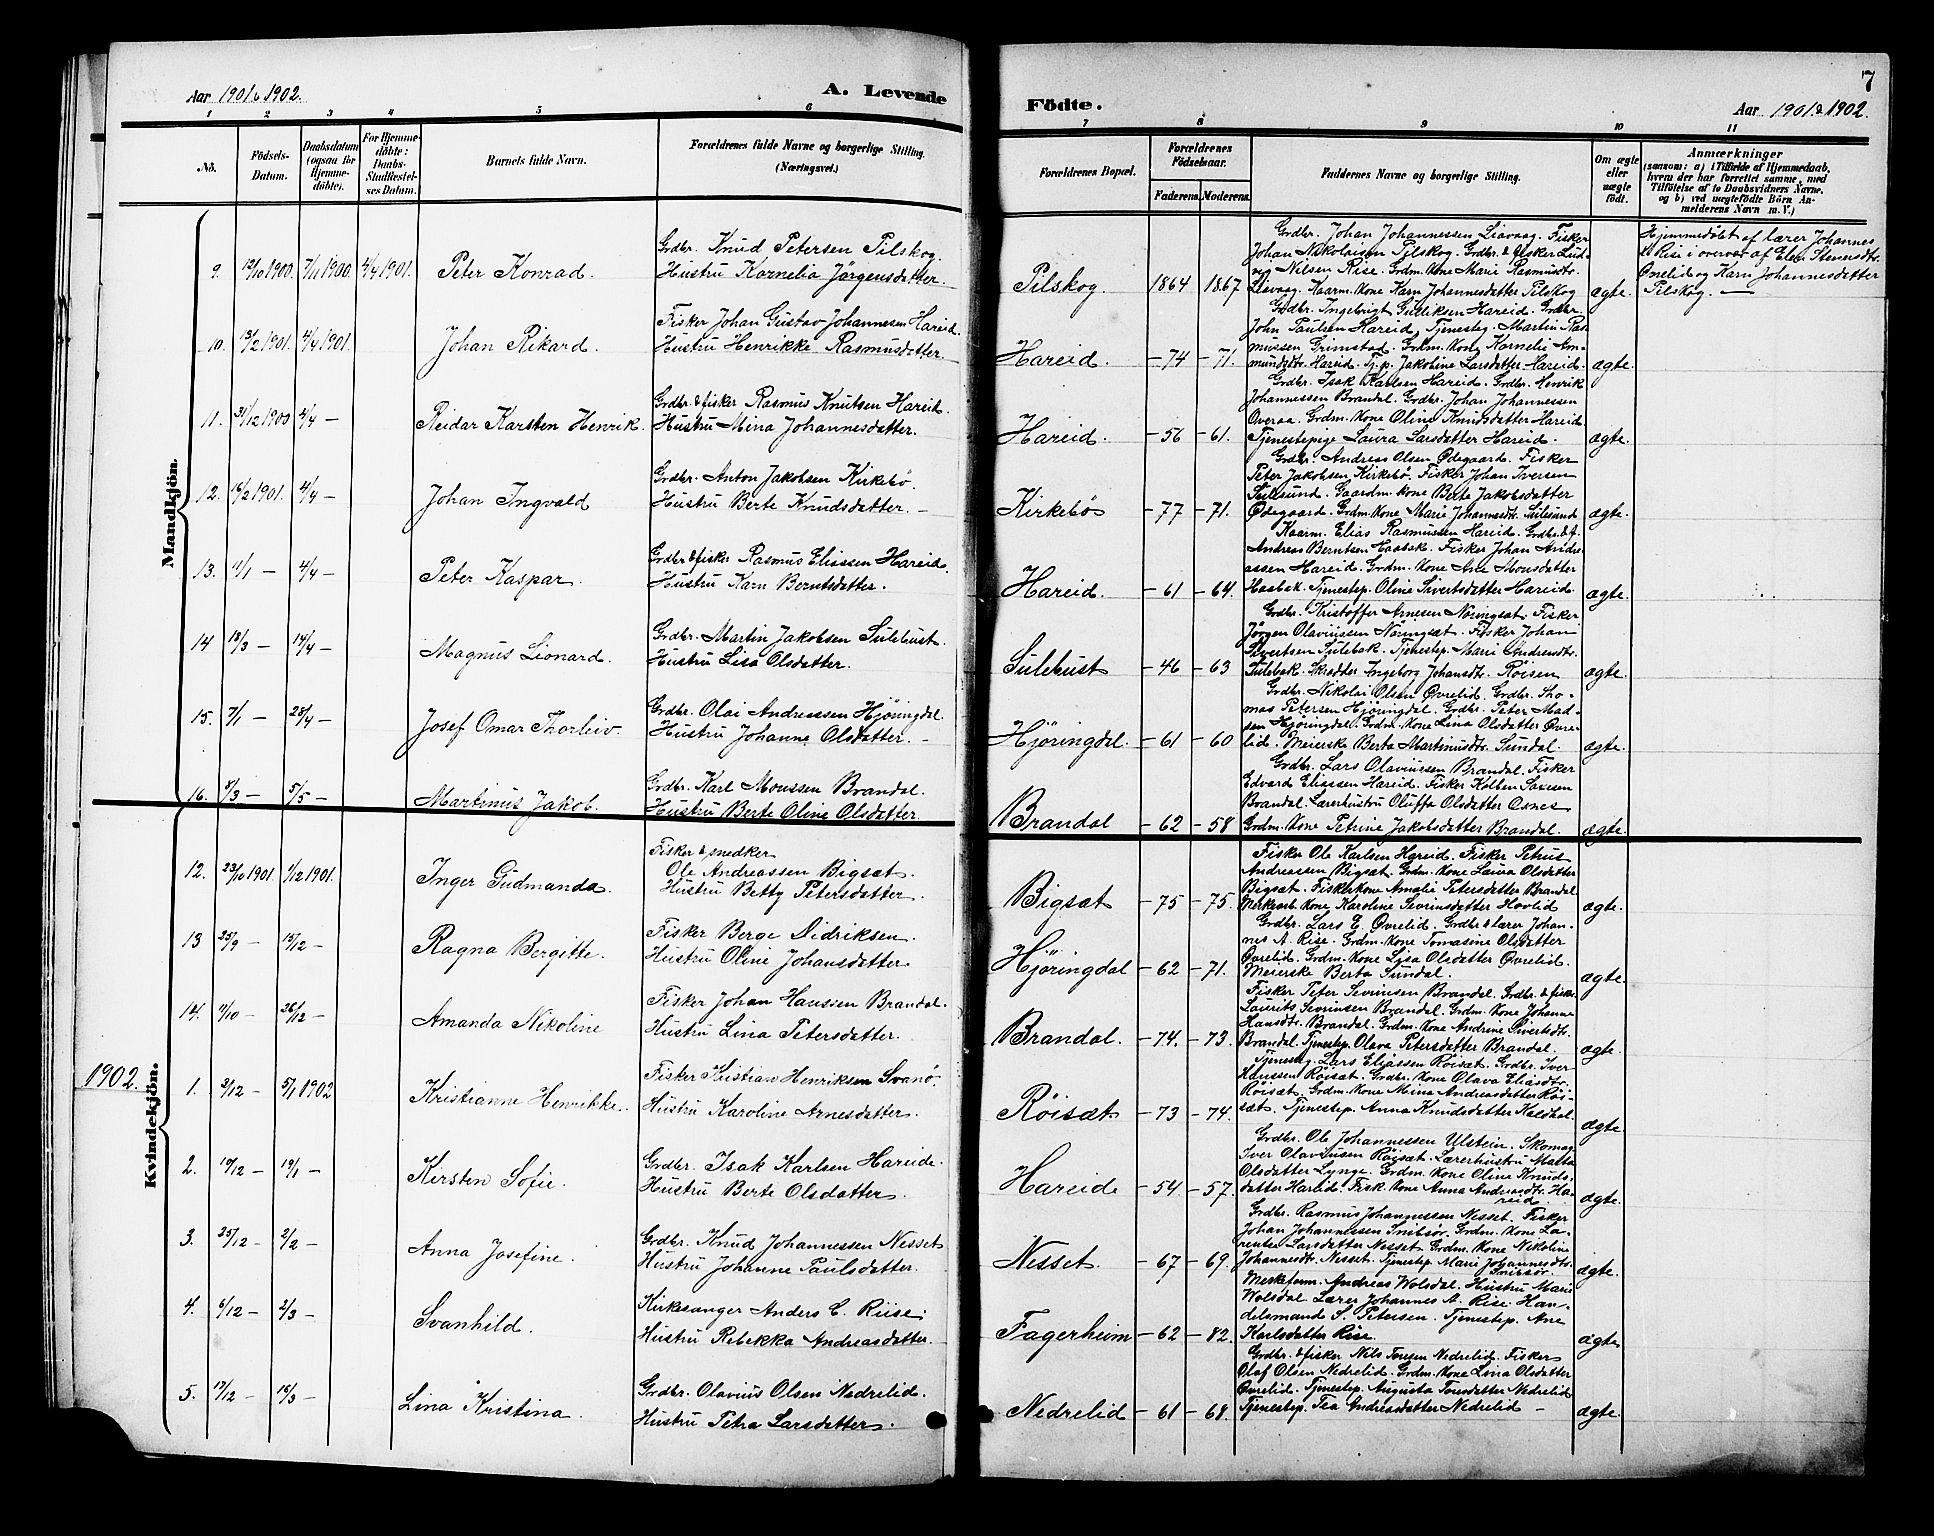 7
Aar 1901 & 1902.
A. Levende
Födte.
Aar 1901 & 1902.
1 2 3 4 5 6 7 8 9 10 11
No.
Födsels-Datum.
Daabsdatum (ogsaa for Hjemmedöbte).
For Hjemmedöbte: Daabs-Stadfæstelses Datum.
Barnets fulde Navn.
Forældrenes fulde Navne og borgerlige Stilling. (Næringsvei.)
Forældrenes Bopæl.
Forældrenes Födselsaar.
Faderens. Moderens.
Faddernes Navne og borgerlige Stilling.
Om ægte eller uægte födt.
Anmærkninger
(saasom: a) i Tilfælde af Hjemmedaab,
hvem der har forrettet samme, med
Tilföielse af to Daabsvidners Navne.
og b) ved uægtefödte Börn An-
melderens Navn m. V.)
Mandkjön.
9. 12/10 1900. 7/11 1900. 4/4 1901. Peter Konrad.
Grdbr. Knud Petersen Pilskog.
Hustru Kornelia Jörgensdatter.
Pilskog. 1864 1867
Grdbr. Johan Johannessen Liavaag. Fisker
Johan Nikolaisen Pilskog. Grdbr. & fisker Lud-
vig Nilsen Rise. Grdm. Kone Marie Rasmusdtr.
Liavaag. Kaarm. Kone Karn Johannesdatter Pilskog
ægte.
Hjemmedöbt af lærer Johannes
A Rise i overvær af Elen Stenersdtr.
Øvrelid og Karn Johannesdatter
Pilskog. —
10. 13/2 1901. 4/4 1901. Johan Rikard.
Fisker Johan Gustav Johannesen Hareid
Hustru Henrikke Rasmusdatter
Hareid — 74 — 71.
Grdbr. Ingebrigt Gulliksen Hareid. Grdbr.
John Paulsen Hareid. Tjenesteg. Martin Ras
mussen Grimstad. Grdm. Kone Kornelia Am-
mundsdtr. Hareid. Tj. p. Jakobine Larsdatter Hareid.
ægte.
11. 31/12 1900 4/4 — Reidar Karsten Henrik.
Grdbr. & fisker Rasmus Knutsen Hareid.
Hustru Mina Johannesdatter.
Hareid. — 56 — 61.
Grdbr. Isak Karlsen Hareid. Grdbr. Henrik
Johannessen Brandal. Grdbr. Johan Johannessen
Overaa. Grdm. Kone Oline Knudsdatter Hareid.
Tjenestepige Laura Larsdatter Hareid.
ægte.
12. 16/2 1901. 4/4 — Johan Ingvald
Grdbr. Anton Jakobsen Kirkebö.
Hustru Berte Knudsdatter. —
Kirkebö — 77 — 71.
Grdbr. Andreas Olsen Ødegaard. Fisker
Peter Jakobsen Kirkebö. Fisker Johan Iversen
Sulesund. Gaardm. Kone Berte Jakobsdatter
Ødegaard. Grdm. Kone Marie Johannesdtr. Sulesund
ægte.
13. 11/1 — 4/4 — Peter Kaspar.
Grdbr & fisker Rasmus Eliassen Hareid.
Hustru Karn Berntsdatter.
Hareid. — 61 — 64.
Kaarm. Elias Rasmussen Hareid. Grdbr. & f.
Andreas Berntsen Haabak. Fisker Johan Andre
assen Hareid. Grdm. Kone Ane Monsdatter
Haabak. Tjenestep. Oline Sivertsdatter Hareid
ægte.
14 18/3 — 14/4 — Magnus Lionard.
Grdbr. Martin Jakobsen Sulebust.
Hustru Lisa Olsdatter.
Sulebust — 46 — 63
Grdbr. Kristoffer Arnesen Noringsæt. Fisker
Jörgen Olaviussen Noringsæt. Fisker Johan
Sivertsen Tulebak. Tjenestep. Marie Andreasdtr.
Tulebak. Skrædder Ingeborg Johansdtr. Röisen
ægte.
15. 7/1 — 28/4 — Josef Omar Thorleiv.
Grdbr. Olai Andreassen Hjöringdal.
Hustru Johanne Olsdatter. —
Hjöringdal. — 61 — 60
Grdbr. Nikolai Olsen Øvrelid. Grdbr. Tho-
mas Petersen Hjöringdal. Grdbr. Peter Mad-
sen Hjöringdal. Grdm. Kone Lina Olsdatter Øvre-
lid. Meierske Berta Martinusdtr. Sundal.
ægte.
16. 8/3 — 5/5 — Martinus Jakob.
Grdbr. Karl Monssen Brandal.
Hustru Berte Oline Olsdatter.
Brandal — 62 — 58
Grdbr. Lars Olaviussen Brandal. Fisker
Edvard Eliassen Hareid. Fisker Kolben Saxesen
Brandal. Lærerhustru Oluffa Olsdatter Osnes
Grdm. Kone Petrine Jakobsdatter Brandal.
ægte.
Kvindekjön.
12. 23/10 1901. 1/12 1901. Inger Gudmanda.
Fisker & snedker
Ole Andreassen Bigsæt.
Hustru Betty Petersdatter.
Bigsæt — 75 — 75.
Fisker Ole Karlsen Hareid. Fisker Petrus
Andreassen Bigsæt. Grdm. Kone Laura Olsdatter
Bigsæt. Fiskerkone Amalie Petersdatter Brandal
Merkearb. Kone Karoline Sevrinsdatter Hovlid
ægte.
13 25/9 — 15/12 — Ragna Bergitte.
Fisker Berge Didriksen.
Hustru Oline Johansdatter.
Hjöringdal — 62 — 71.
Grdbr. Lars E. Øvrelid. Grdbr & lærer Johan-
nes A. Rise. Grdm. Kone Tomasine Olsdatter
Øvrelid. Grdm. Kone Lisa Olsdatter Øvrelid.
Meierske Berta Sundal.
ægte.
14. 11/10 — 26/12 — Amanda Nikoline
Fisker Johan Hanssen Brandal.
Hustru Lina Petersdatter.
Brandal. — 74. — 73.
Fisker Peter Sevrinsen Brandal. Grdbr. & fisker
Laurits Sevrinsen Brandal. Grdm. Kone Johanne
Hansdtr. Brandal. Grdm. Kone Andrine Sivertsdtr.
Brandal. Tjenestep. Olava Petersdatter Brandal.
ægte.
1902.
1. 3/12 — 5/1 1902 Kristianne Henrikke.
Fisker Kristian Henriksen Svanö.
Hustru Karoline Arnesdatter.
Röisæt — 73 — 74.
Tjenesteg. Lars Eliassen Röisæt. Grdbr. Iver
Hanssen Röisæt. Grdbr. Kone Olava Eliasdtr.
Röisæt. Grdm. Kone Mina Andreasdatter Röi-
sæt. Tjenestep. Anna Knudsdatter Kaldhol.
ægte.
2. 10/12 — 19/1 — Kirsten Sofie.
Grdbr. Isak Karlsen Hareide.
Hustru Berte Olsdatter.
Hareide — 54 — 57.
Grdbr. Ole Johannessen Ulstein. Skomag.
Iver Olaviussen Röisæt. Lærerhustru Matta
Olsdatter Lynge. Grdm. Kone Oline Knuds-
datter Hareid. Fisk. Kone Anna Andreasdtr. Ha-
reid.
ægte.
3. 25/12 — 2/2 — Anna Josefine.
Grdbr. Knud Johannessen Nesset
Hustru Johanne Paulsdatter.
Nesset. — 67 — 69.
Grdbr. Rasmus Johannessen Nesset. Fisker
Johan Johannessen Snibsör. Grdm. Kone La-
rentse Larsdatter Nesset. Grdm. Kone Nikoline
Johannesdtr. Nesset. Tjenestep. Marie Johannesdtr.
Snibsör
ægte.
4. 6/12 — 2/3 — Svanhild.
Kirkesanger Anders C. Riise.
Hustru Rebekka Andreasdatter.
Fagerheim — 62 — 82.
Merkeform. Andreas Wolsdal. Hustru Marie
Wolsdal. Lærer Johannes A. Rise. Han-
delsmand S. Petersen. Tjenestep. Ane
Karlsdatter Rise.
ægte
5. 17/12 — 16/3 — Lina Kristina.
Grdbr. Olavius Olsen Nedrelid.
Hustru Petra Larsdatter.
Nedrelid — 61 — 68.
Grdbr. & fisker Nils Toresen Nedrelid. Fisker
Olaf Olsen Nedrelid. Grdm. Kone Lina Olsdatter
Øvrelid. Tjenestep. Augusta Toresdatter Nedrelid
Tjenestep. Tea Andreasdatter Nedrelid —
ægte.